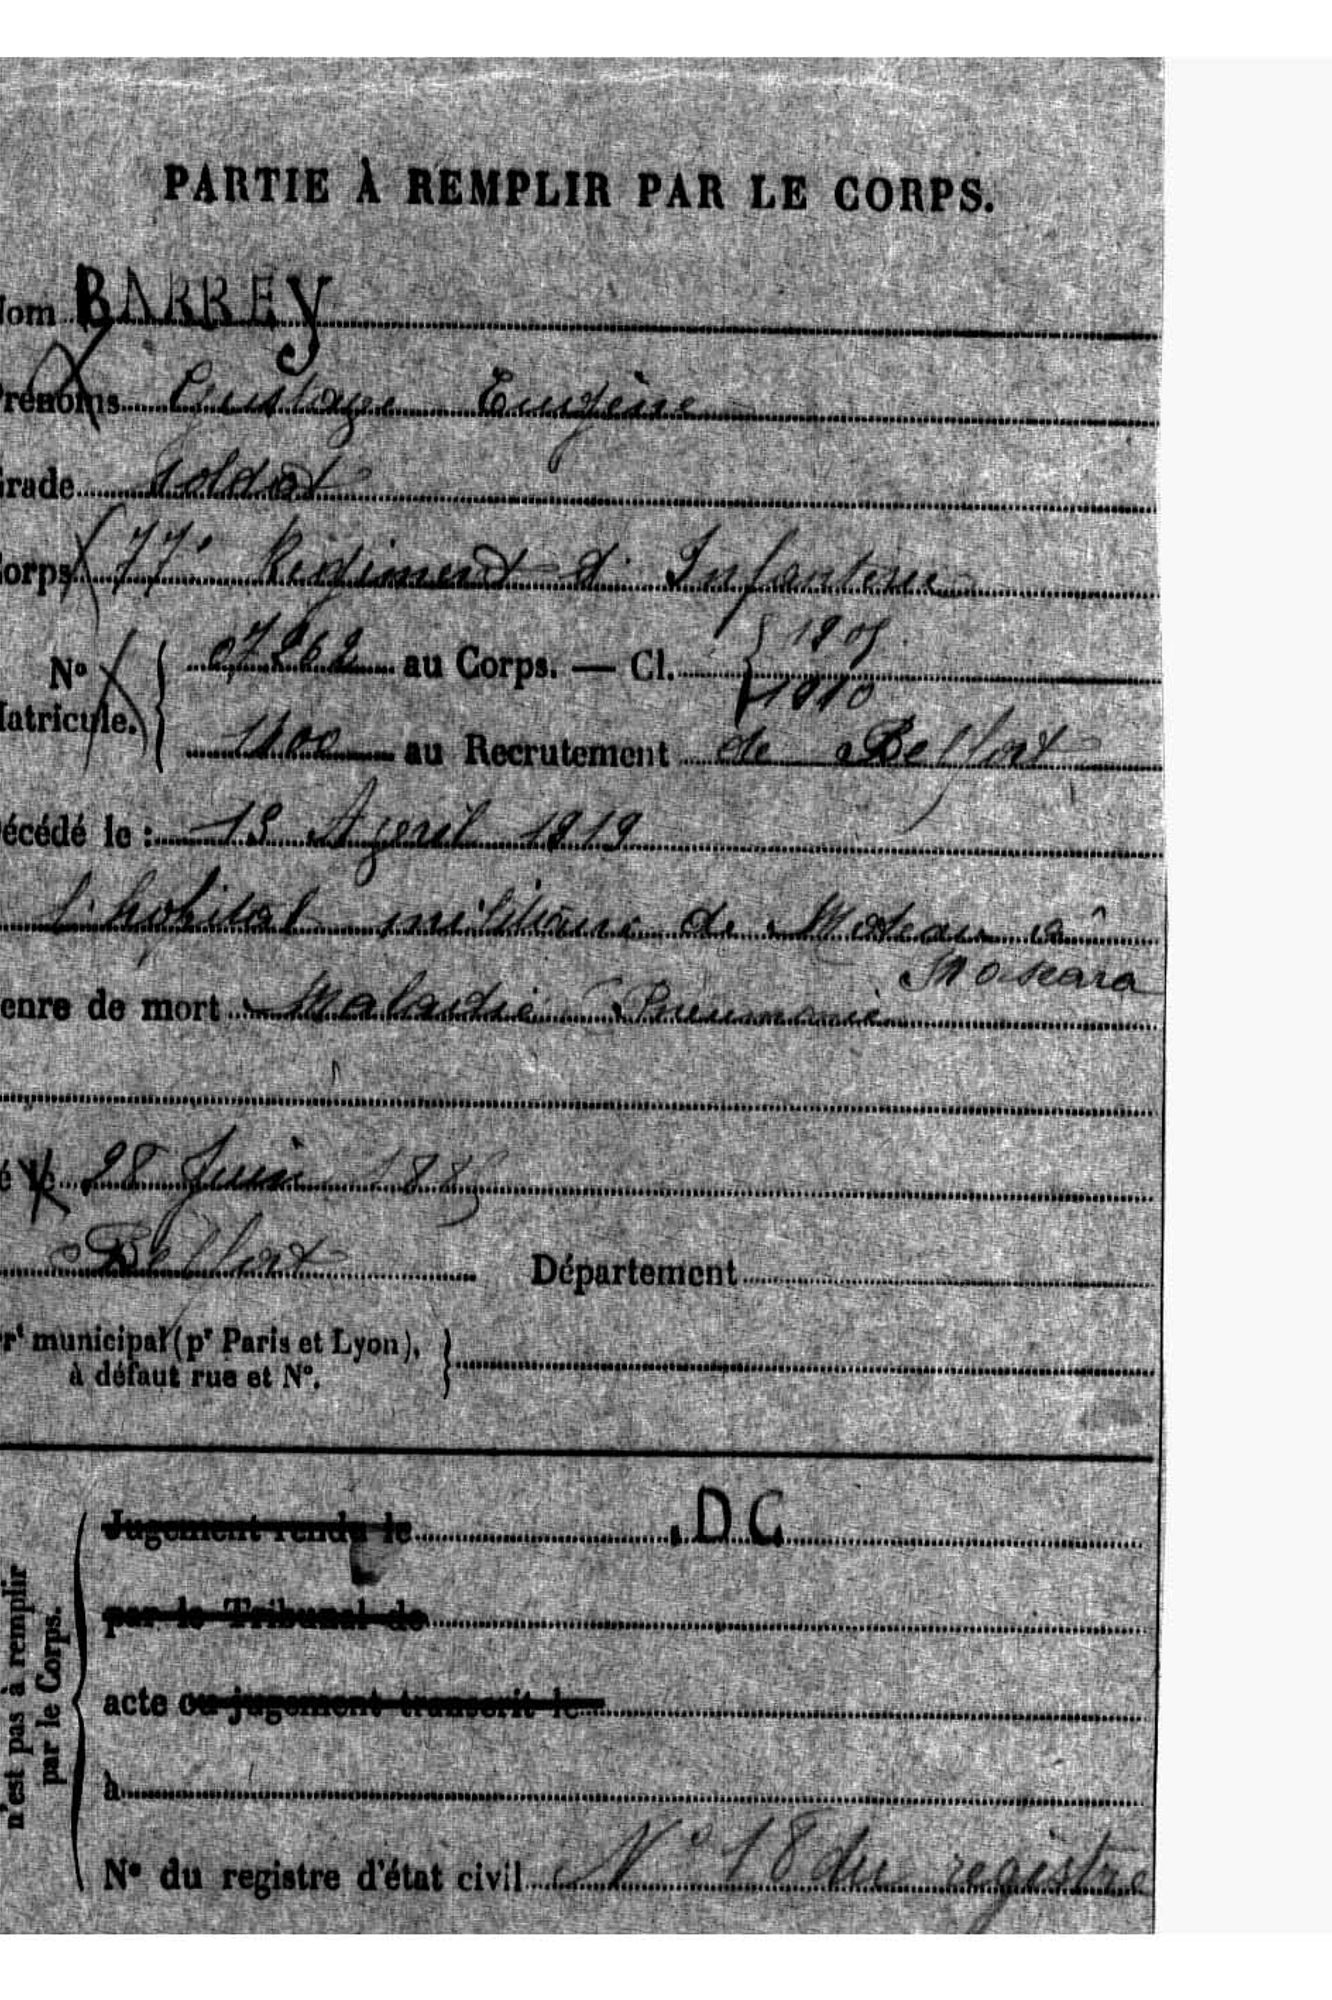 PARTIE À REMPLIR PAR LE CORPS.
Nom BARREY
Prénoms Gustave Eugène
Grade Soldat
Corps 77e Régiment d'Infanterie
No Matricule. { 07262 au Corps. — Cl. { 1905 1910
1100 au Recrutement de Belfort
Décédé le : 19 Avril 1919
l'hopital militaire de à Mascara
Genre de mort Maladie Pneumonie
é le 28 Juin 1885
Belfort Département
rrt municipal (pr Paris et Lyon), à défaut rue et No. }
Jugement rendu le D C
par le Tribunal de
acte ou jugement transcrit le
à
n'est pas à remplir par le Corps.
No du registre d'état civil No 18 du registre